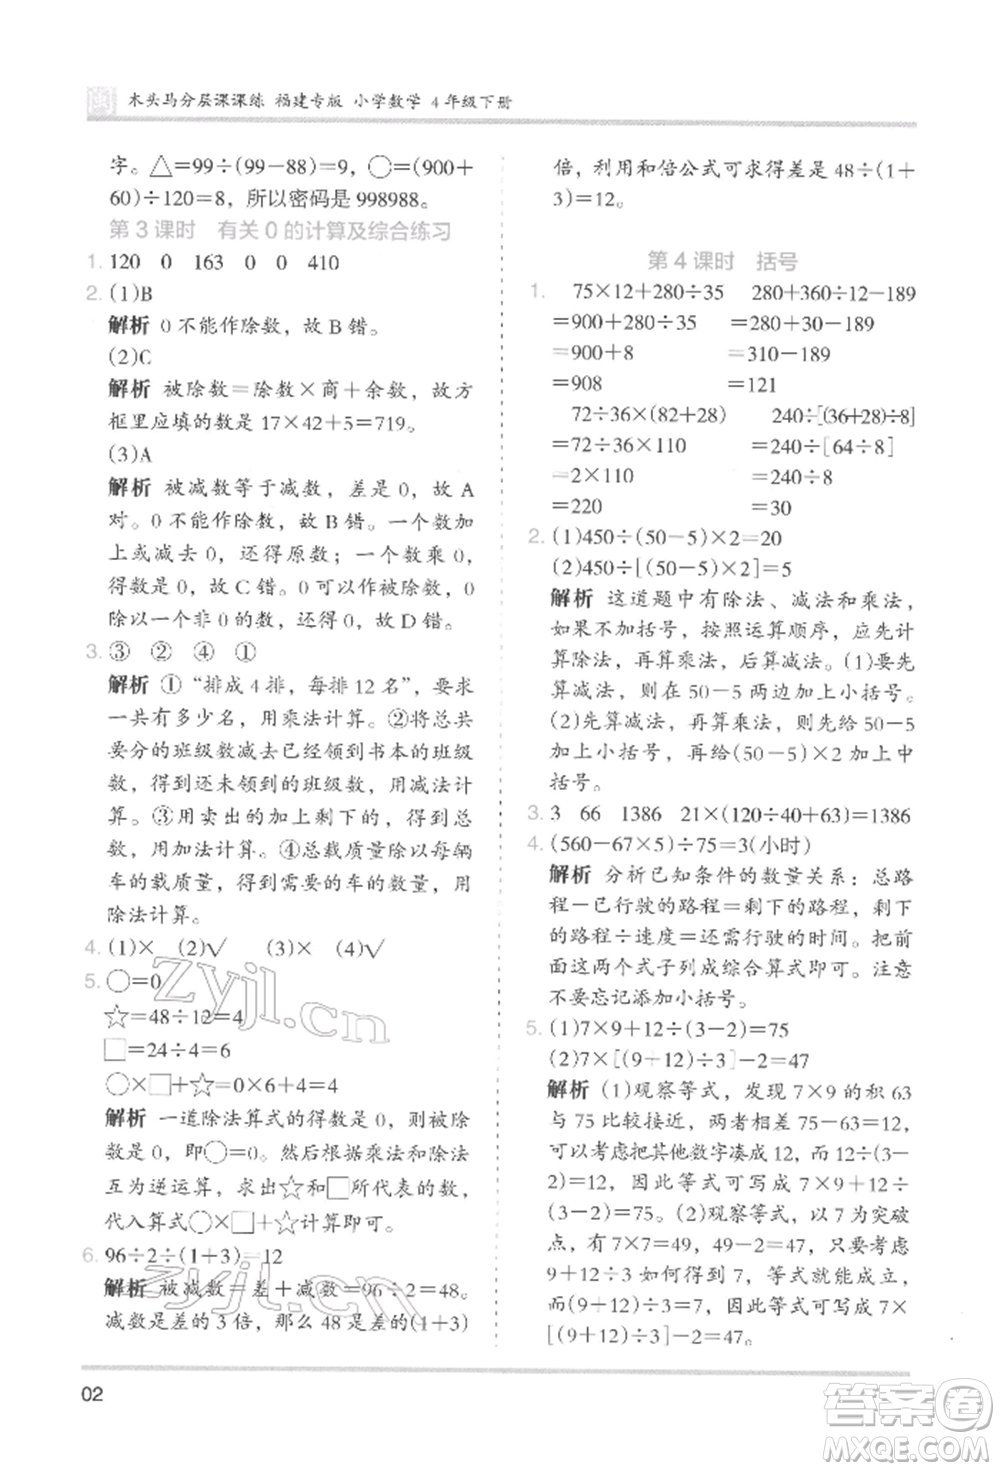 闽 木头马分层课课练 福建专版 小学数学 4年级下册
字。△=99÷(99-88)=9,○=(900+
60)÷120=8,所以密码是998988。
第3课时 有关0的计算及综合练习
1. 120 0 163 0 0 410
2. (1)B
解析 0不能作除数,故B错。
(2)C
解析 被除数=除数×商+余数,故方
框里应填的数是17×42+5=719。
(3)A
解析 被减数等于减数,差是0,故A
对。0不能作除数,故B错。一个数加
上或减去0,还得原数;一个数乘0,
得数是0,故C错。0可以作被除数,0
除以一个非0的数,得0,故D错。
3. ③ ② ④ ①
解析 ①“排成4排,每排12名”,要求
一共有多少名,用乘法计算。②将总共
要分的班级数减去已经领到书本的班级
数,得到还未领到的班级数,用减法计
算。③用卖出的加上剩下的,得到总
数,用加法计算。④总载质量除以每辆
车的载质量,得到需要的车的数量,用
除法计算。
4. (1)× (2)√ (3)× (4)√
5. ○=0
☆=48÷12=4
□=24÷4=6
○×□+☆=0×6+4=4
解析 一道除法算式的得数是0,则被除
数是0,即○=0;然后根据乘法和除法
互为逆运算,求出☆和□所代表的数,
代入算式○×□+☆计算即可。
6. 96÷2÷(1+3)=12
解析 被减数=差+减数=96÷2=48。
减数是差的3倍,那么48是差的(1+3)
倍,利用和倍公式可求得差是48÷(1+
3)=12。
第4课时 括号
1. 75×12+280÷35 280+360÷12-189
=900+280÷35 =280+30-189
=900+8 =310-189
=908 =121
72÷36×(82+28) 240÷[(36+28)÷8]
=72÷36×110 =240÷[64÷8]
=2×110 =240÷8
=220 =30
2. (1)450÷(50-5)×2=20
(2)450÷[(50-5)×2]=5
解析 这道题中有除法、减法和乘法,
如果不加括号,按照运算顺序,应先计
算除法,再算乘法,后算减法。(1)要先
算减法,则在50-5两边加上小括号。
(2)先算减法,再算乘法,则先给50-5
加上小括号,再给(50-5)×2加上中
括号。
3. 3 66 1386 21×(120÷40+63)=1386
4. (560-67×5)÷75=3(小时)
解析 分析已知条件的数量关系:总路
程-已行驶的路程=剩下的路程,剩下
的路程÷速度=还需行驶的时间。把前
面这两个式子列成综合算式即可。注意
不要忘记添加小括号。
5. (1)7×9+12÷(3-2)=75
(2)7×[(9+12)÷3]-2=47
解析 (1)观察等式,发现7×9的积63
与75比较接近,两者相差75-63=12,
可以考虑把其他数字凑成12,即12÷
(3-2)=12,因此等式可写成7×9+12÷
(3-2)=75。(2)观察等式,以7为突破
口,因为7×7=49,49-2=47,所以
只要考虑9+12÷3如何得到7,通过
9+12÷3=7,因此等式可写成7×
[(9+12)÷3]-2=47。
02
zyjl.cn
zyjl.cn
答案圈
MXQE.COM